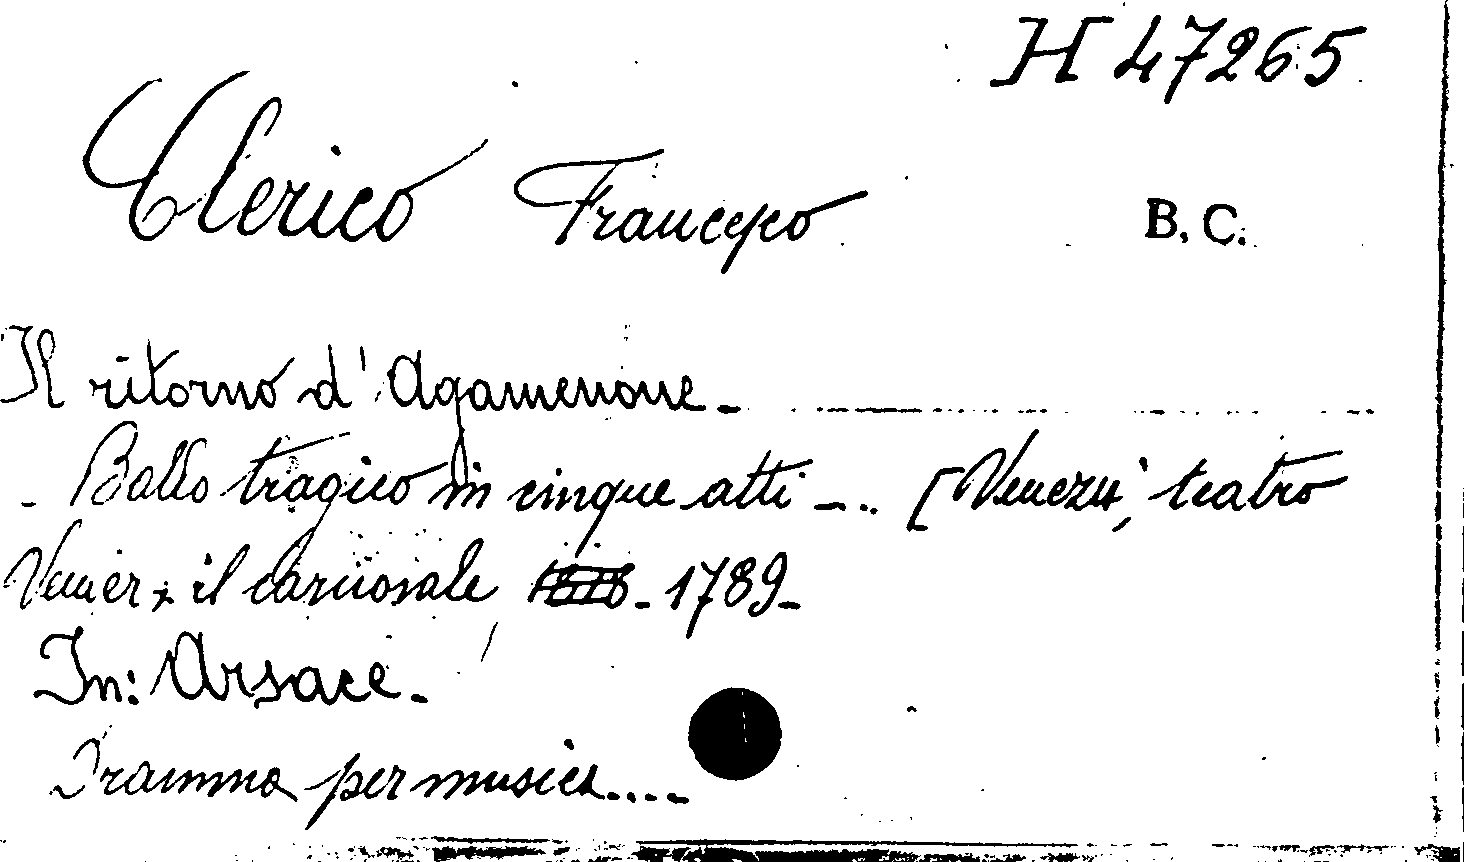 H 47265
Clerico Francesco
B. C.
Il ritorno d'Agamenone.-
- Ballo tragico in cinque atti -.. [Venezia, teatro
Venier, il carnovale 1789-
In: Arsace.-
Dramma per musica....-